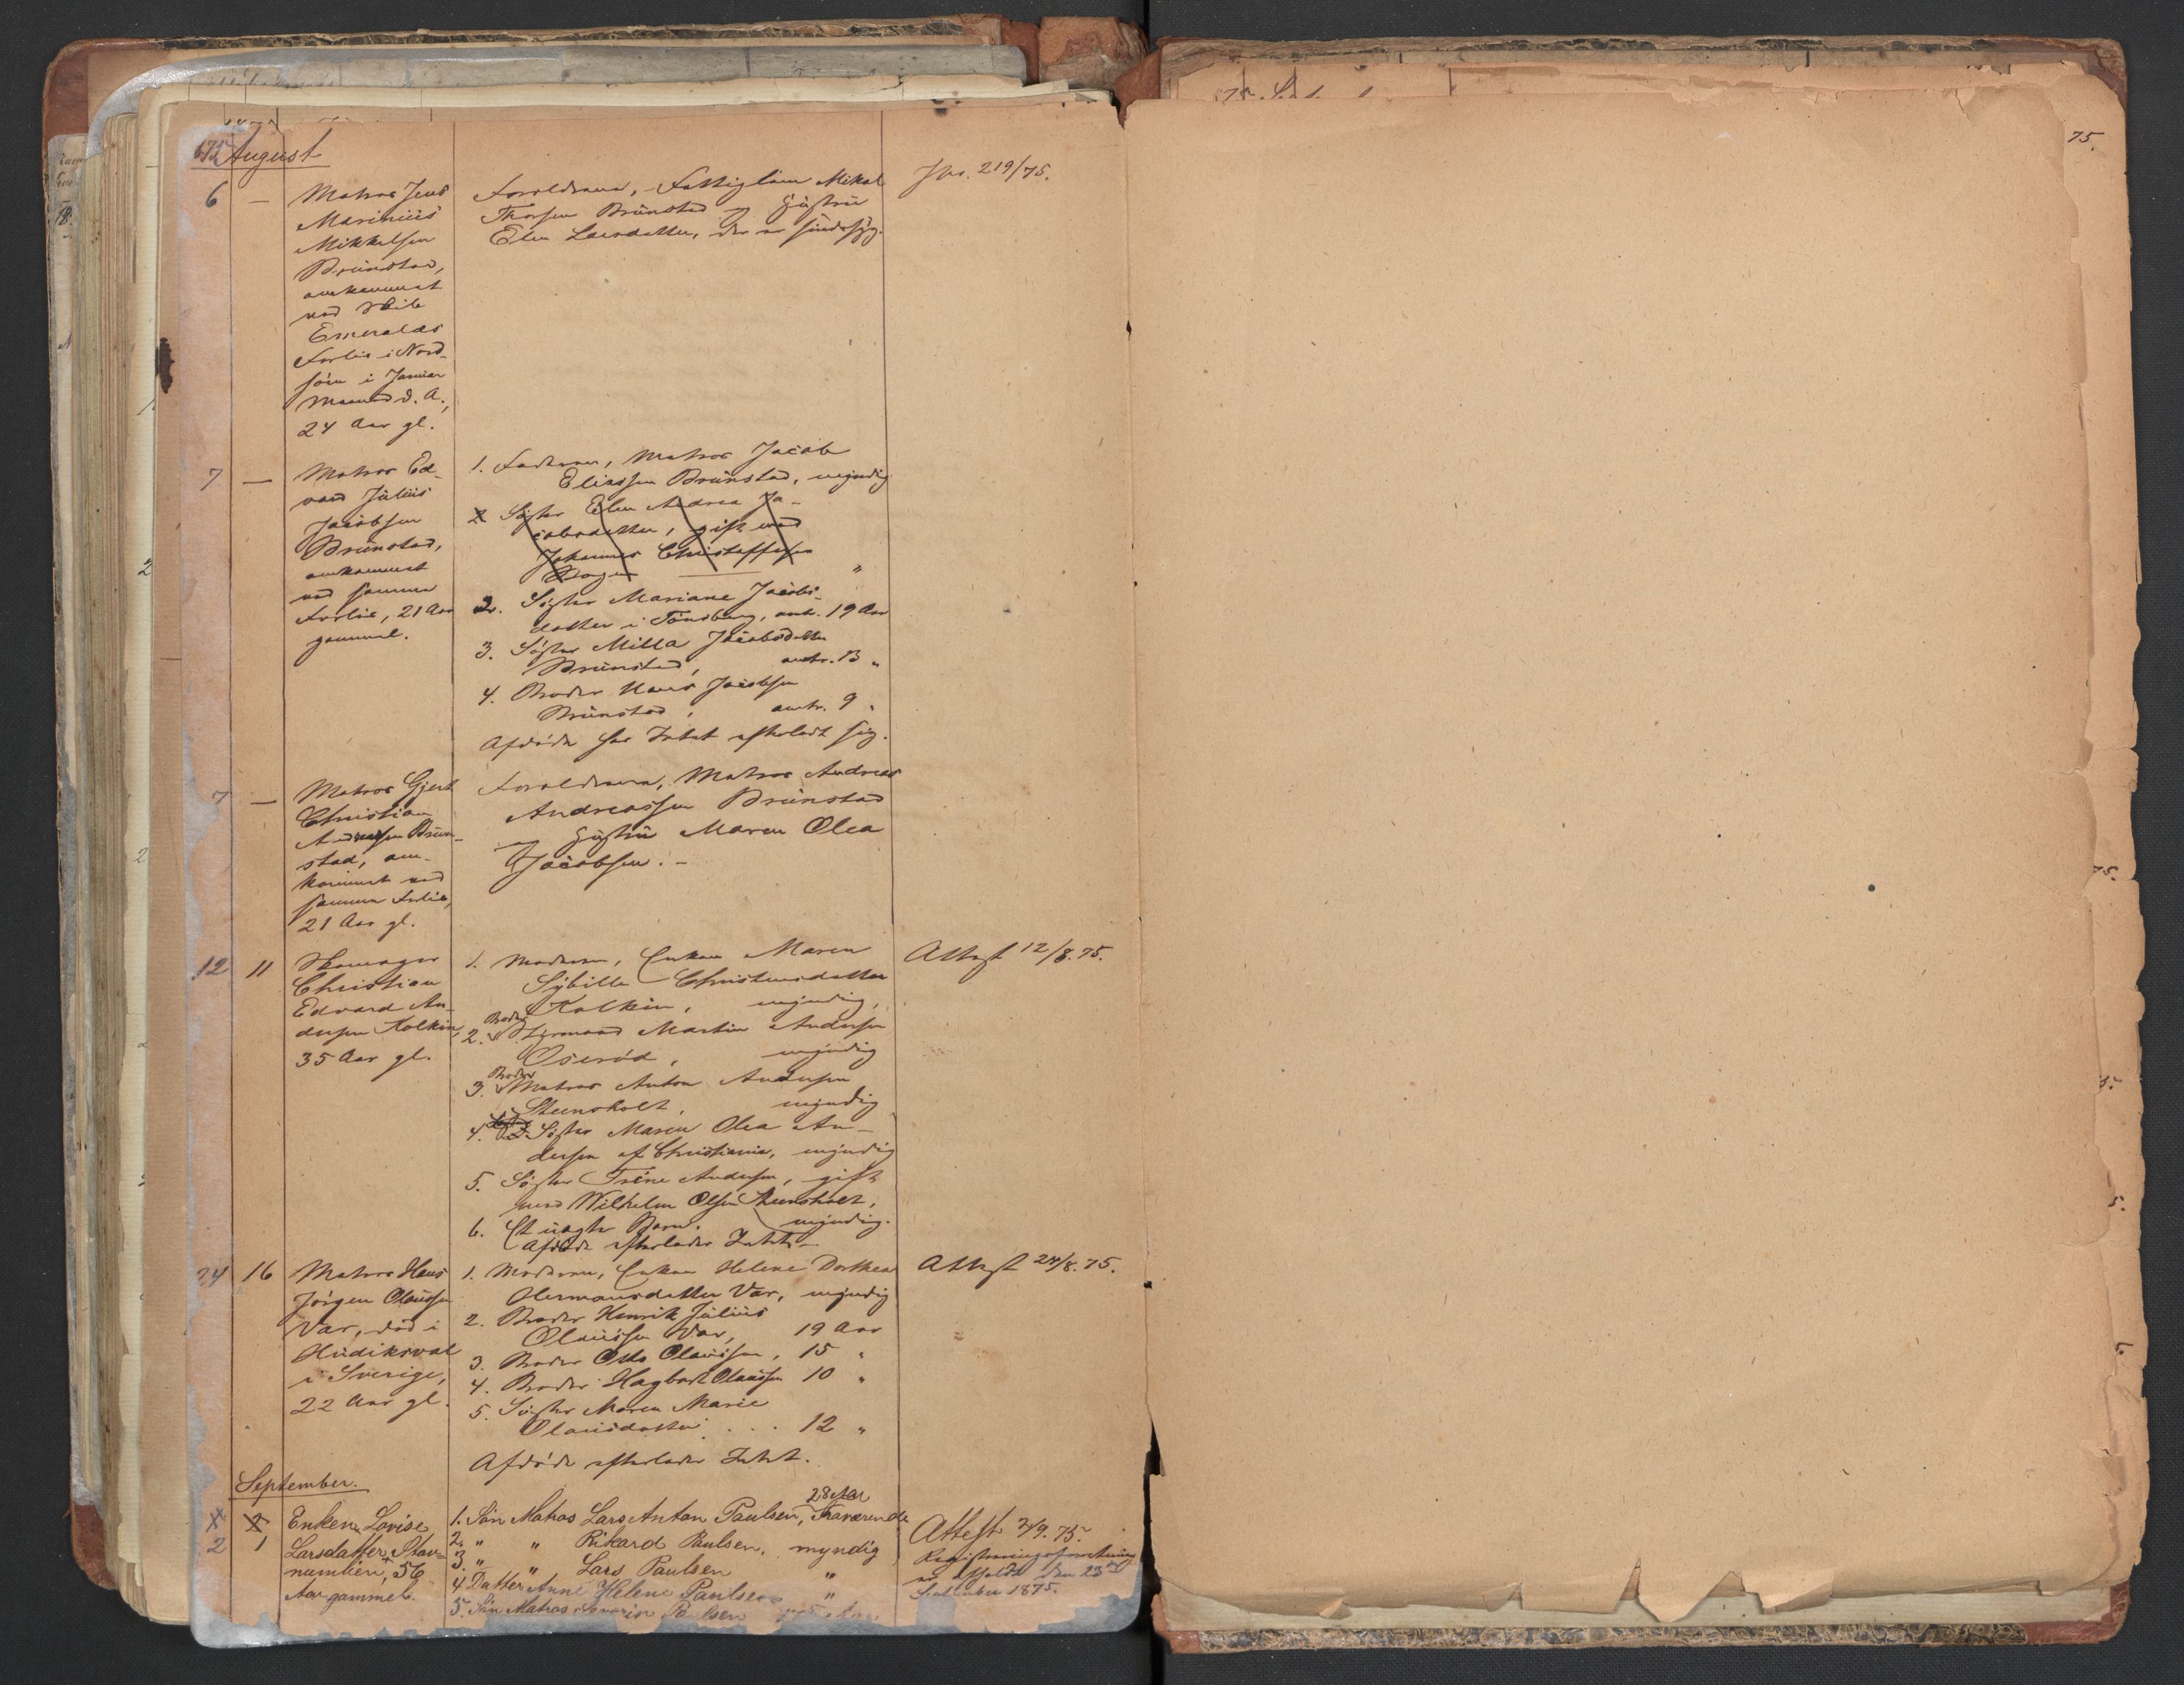 75.
1875 August
6 — Matros Jens
Marinius
Mikkelsen
Brunstad,
omkommet
ved Skib
Esmeraldas
Forlis i Nord-
søen i Januar
Maaned d. A.,
24 Aar gl.
Forældrene, Fattiglem Mikal
Thorsen Brunstad og Hustru
Elen Larsdatter, der er sindssyg.
Jnr. 219/75.
7 — Matros Ed-
vard Julius
Jacobsen
Brunstad,
omkommet
ved samme
Forlis, 21 Aar
gammel.
1. Faderen, Matros Jacob
Eliassen Brunstad, myndig
2 Søster Elen Andrea Ja-
cobsdatter, gift med
Johannes Christoffersen
"
2. Søster Mariane Jacobs-
datter i Tønsberg, omtr. 19 Aar
3. Søster Milla Jacobsdatter
Brunstad, omtr. 13 "
4. Broder Hans Jacobsen
Brunstad, omtr. 9 "
Afdøde har Intet efterladt sig.
7 — Matros Gjert
Christian
Andreassen Brun-
stad, om-
kommet ved
samme Forlis,
21 Aar gl.
Forældrene, Matros Andreas
Andreassen Brunstad
og Hustru Maren Olea
Jacobsen. -
12 11 Skomager
Christian
Edvard An-
dersen Kolkin,
35 Aar gl.
1. Moderen, Enken Maren
Sybille Christensdatter
Kolkin, myndig,
2. Broder Styrmand Martin Andersen
Oserød, myndig
3. Broder Matros Anton Andersen
Steensholt, myndig
4. Søster Maren Olea An-
dersen af Christiania, myndig
5. Søster Trine Andersen, gift
med Wilhelm Olsen Steensholt,
myndig.
6. Et uægte Barn.
Afdøde efterlader Intet. -
Attest 12/8. 75.
24 16 Matros Hans
Jørgen Olaussen
Var, død i
Hudiksval
i Sverige,
22 Aar gl.
1. Moderen, Enken Helene Dorthea
Hermansdatter Var, myndig
2. Broder Henrik Julius
Olaussen Var, 19 Aar
3. Broder Otto Olaussen, 15 "
4. Broder Hagbart Olaussen 10 "
5. Søster Maren Marie
Olausdatter . . . 12 "
Afdøde efterlader Intet.
Attest 24/8. 75.
September.
2 1 Enken Lovise
Larsdatter Stav-
numlien, 56
Aar gammel.
28 Aar
1. Søn Matros Lars Anton Paulsen, Fraværende
2. " " Rikard Paulsen, myndig
3. " " Lars Paulsen "
4 Datter Anne Helene Paulsen "
5. Søn Matros Severin Paulsen
Attest 2/9. 75.
Registreringsforretning
er afholdt den 23de
September 1875.